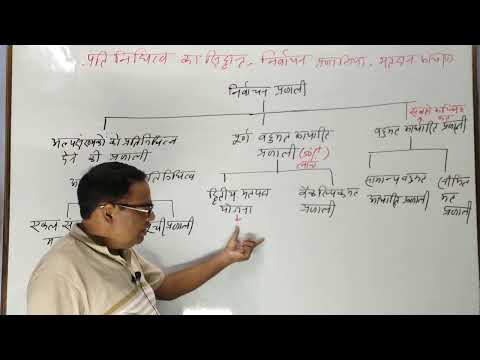 प्रतिनिधित्व का सिद्धान्त, निर्वाचन प्रणालियां, मतदान
निर्वाचन प्रणाली
अल्पसंख्यकों को प्रतिनिधित्व
देने की प्रणाली
प्रतिनिधित्व
एकल
सूची प्रणाली
पूर्ण बहुमत आधारित
प्रणाली
द्वितीय मतपत्र
योजना
वैकल्पिक मत
प्रणाली
सबसे अधिक
बहुमत आधारित प्रणाली
सामान्य बहुमत
आधारित प्रणाली
सीमित
मत
प्रणाली